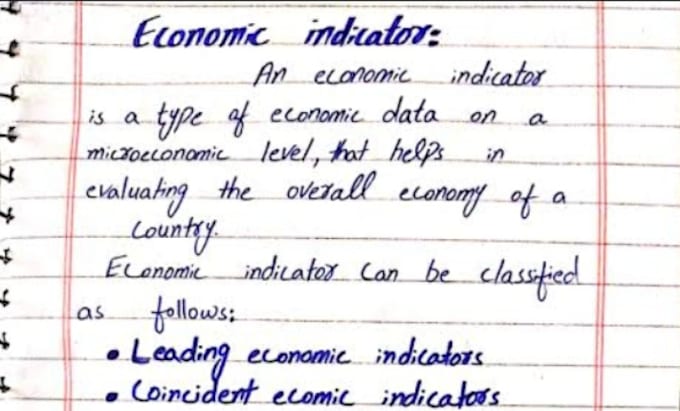 Economic indicator:
An economic indicator
is a type of economic data on a
microeconomic level, that helps in
evaluating the overall economy of a
country.
Economic indicator can be classified
as follows:
• Leading economic indicators
• Coincident ecomic indicators